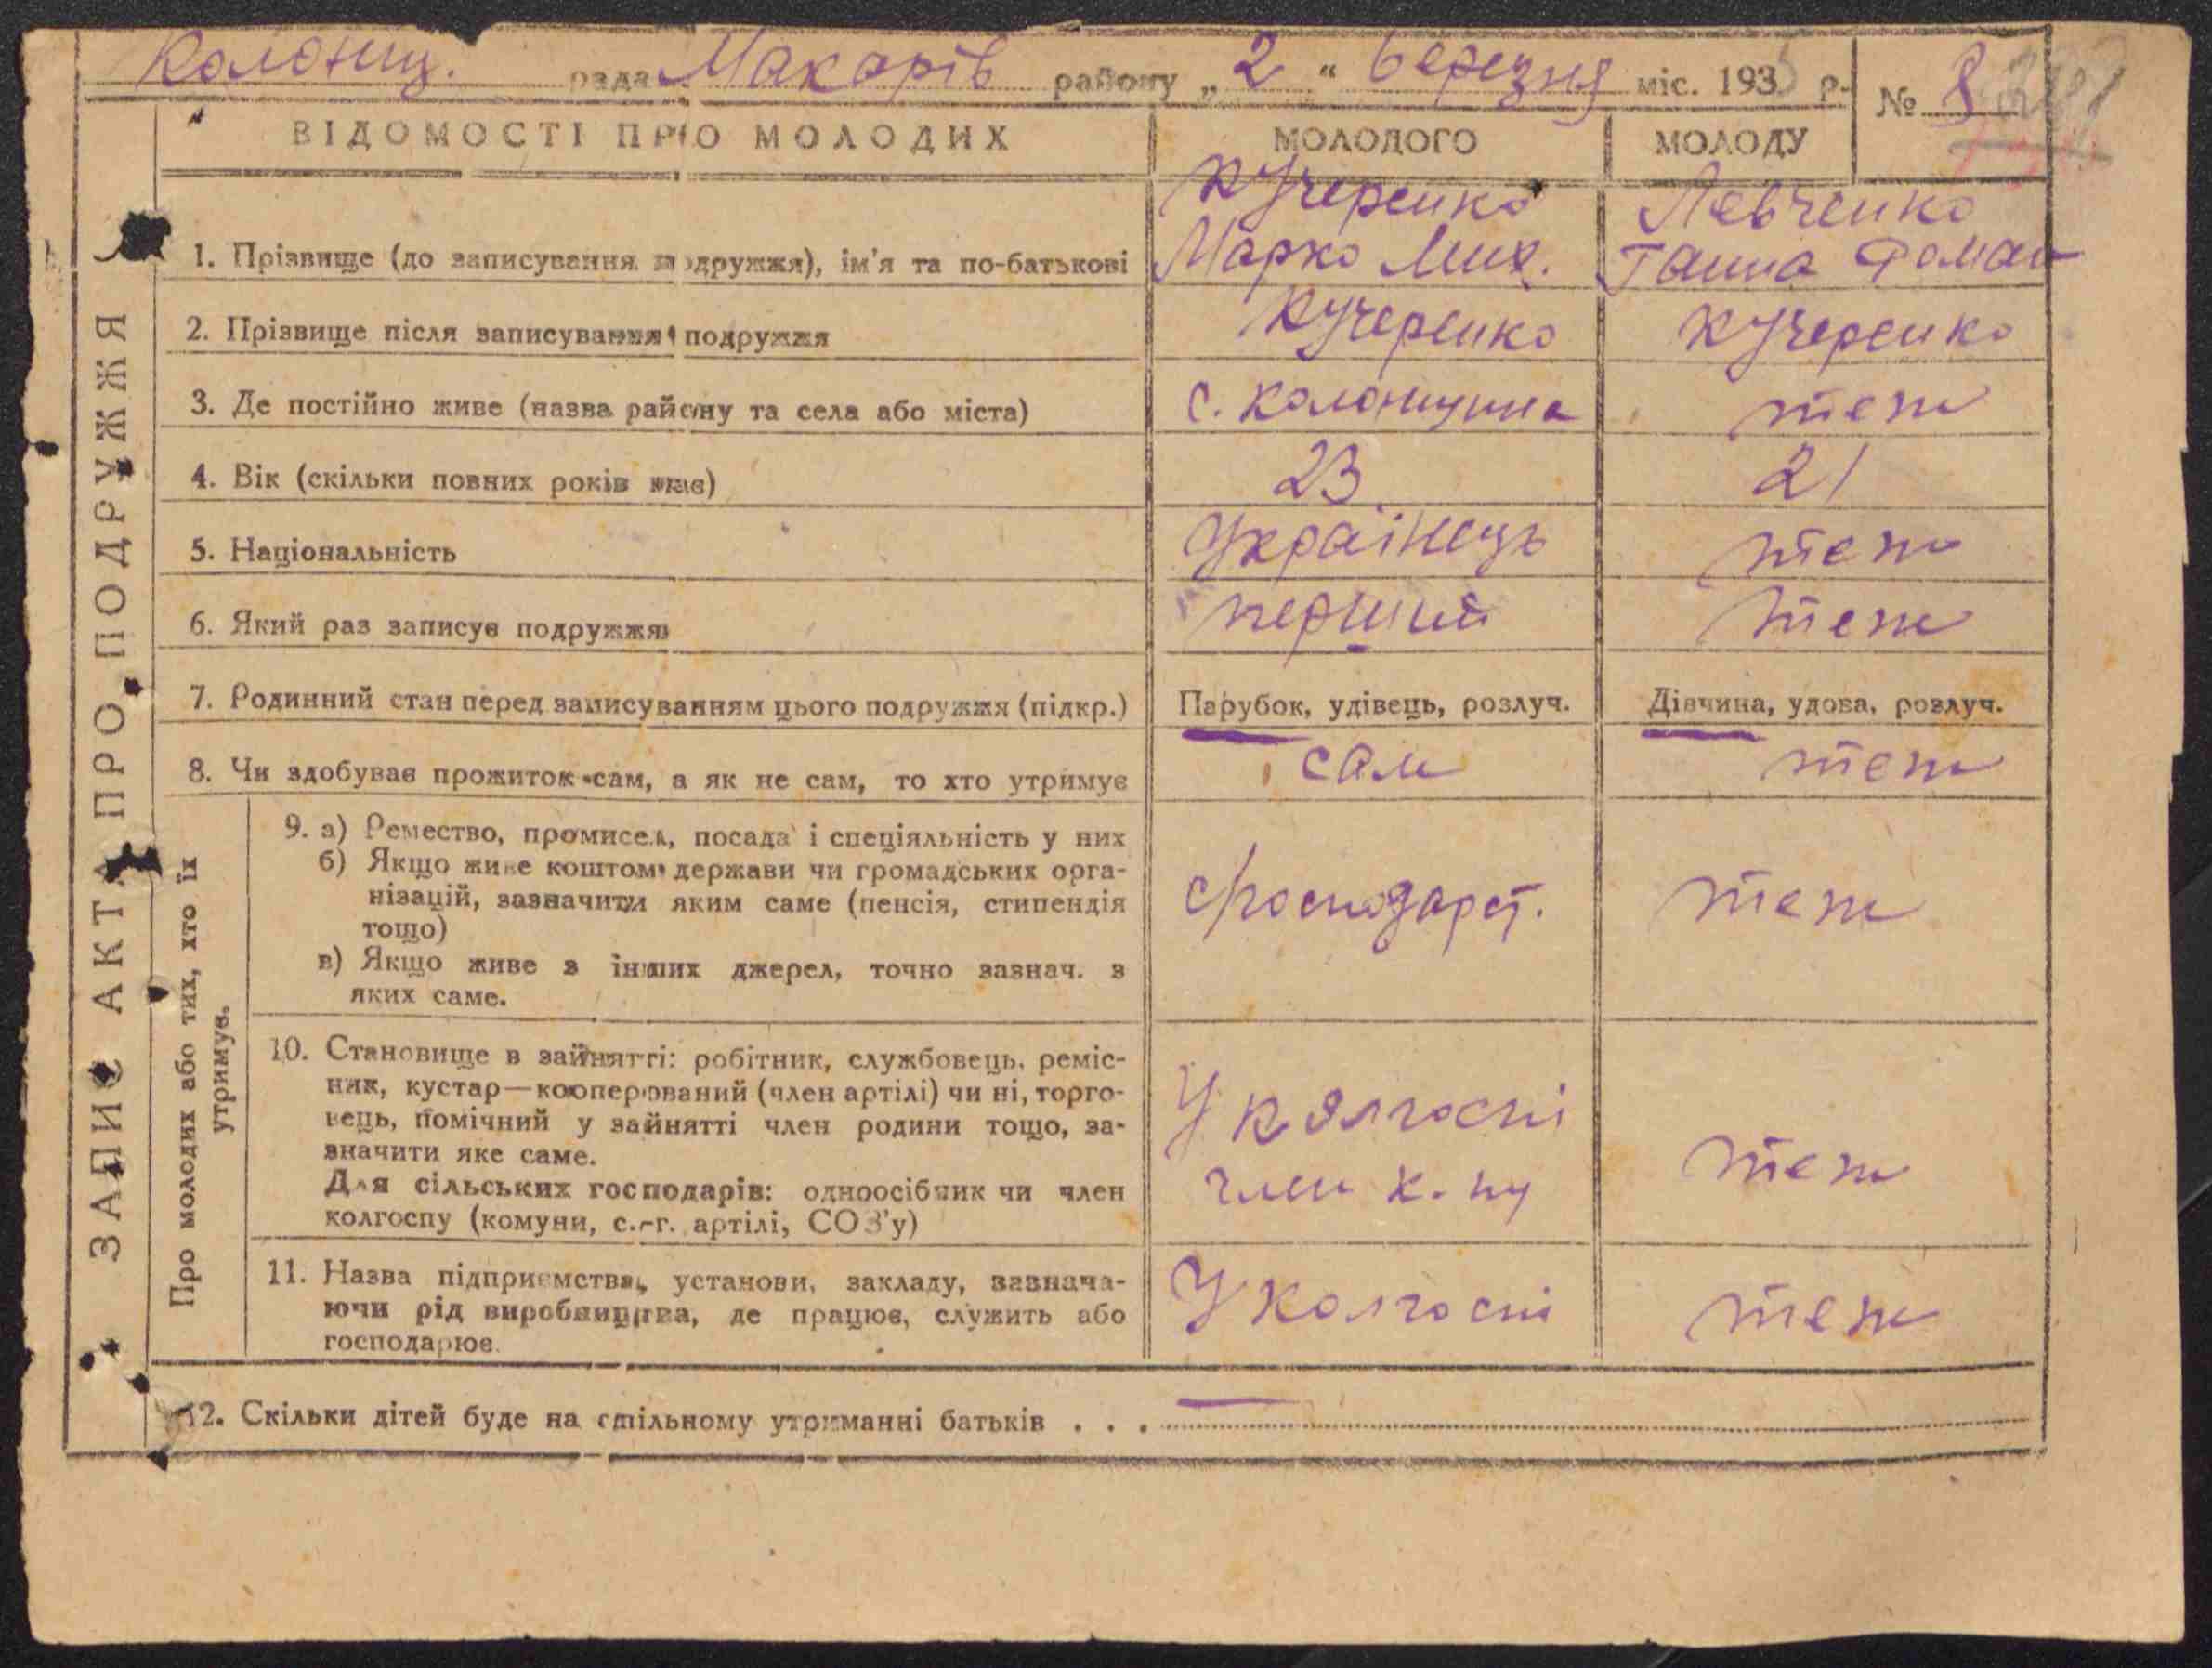 Колонщ. рада Макарів району „ 2 “ березня міс. 193 р.
№ 8
ВІДОМОСТІ ПРО МОЛОДИХ
МОЛОДОГО
МОЛОДУ
ЗАПИС АКТА ПРО ПОДРУЖЖЯ
1. Прізвище (до записування подружжя), ім'я та по-батькові
Кучеренко
Марко Мих.
Левченко
Ганна Роман
2. Прізвище після записування подружжя
Кучеренко
Кучеренко
3. Де постійно живе (назва району та села або міста)
с. Колонщина
теж
4. Вік (скільки повних років має)
23
21
5. Національність
Українець
теж
6. Який раз записує подружжя
перший
теж
7. Родинний стан перед записуванням цього подружжя (підкр.)
Парубок, удівець, розлуч.
Дівчина, удова, розлуч.
8. Чи здобуває прожиток сам, а як не сам, то хто утримує
сам
теж
Про молодих або тих, хто їх
утримує.
9. а) Ремество, промисел, посада і спеціяльність у них
б) Якщо живе коштом держави чи громадських орга-
нізацій, зазначити яким саме (пенсія, стипендія
тощо)
в) Якщо живе з інших джерел, точно зазнач. з
яких саме.
господарст.
теж
10. Становище в зайнятті: робітник, службовець, реміс-
ник, кустар—кооперований (член артілі) чи ні, торго-
вець, помічний у зайнятті член родини тощо, за-
значити яке саме.
Для сільських господарів: одноосібник чи член
колгоспу (комуни, с.-г. артілі, СОЗ'у)
У колгоспі
член к-пу
теж
11. Назва підприємства, установи, закладу, зазнача-
ючи рід виробництва, де працює, служить або
господарює.
У колгоспі
теж
12. Скільки дітей буде на спільному утриманні батьків . . . —